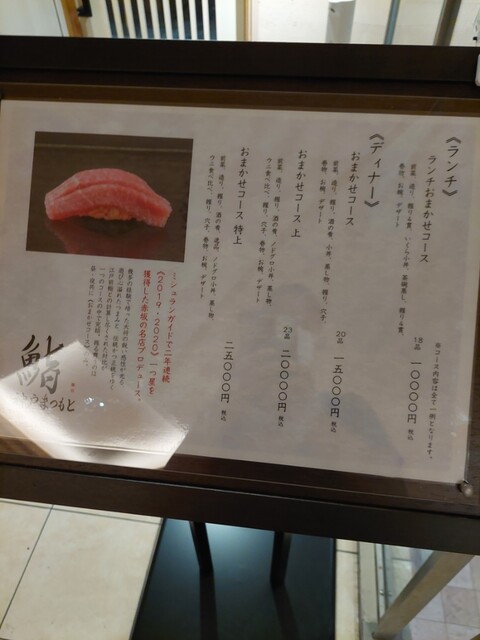 《ランチ》
ランチおまかせコース
前菜、造り、握り4貫、いくら小丼、茶碗蒸し、握り4貫、
巻物、お椀、デザート
18品 一〇〇〇〇円 税込
※コース内容は全て一例となります。
《ディナー》
おまかせコース
前菜、造り、握り、酒の肴、小丼、蒸し物、握り、穴子、
巻物、お椀、デザート
20品 一五〇〇〇円 税込
おまかせコース 上
前菜、造り、握り、酒の肴、ノドグロ小丼、蒸し物、
ウニ食べ比べ、握り、穴子、巻物、お椀、デザート
23品 二〇〇〇〇円 税込
おまかせコース 特上
前菜、造り、握り、酒の肴、逸品、ノドグロ小丼、蒸し物、
ウニ食べ比べ、握り、穴子、巻物、お椀、デザート
二五〇〇〇円 税込
ミシュランガイドで二年連続
《2019・2020》一つ星を
獲得した赤坂の名店プロデュース。
鮨
まつもと